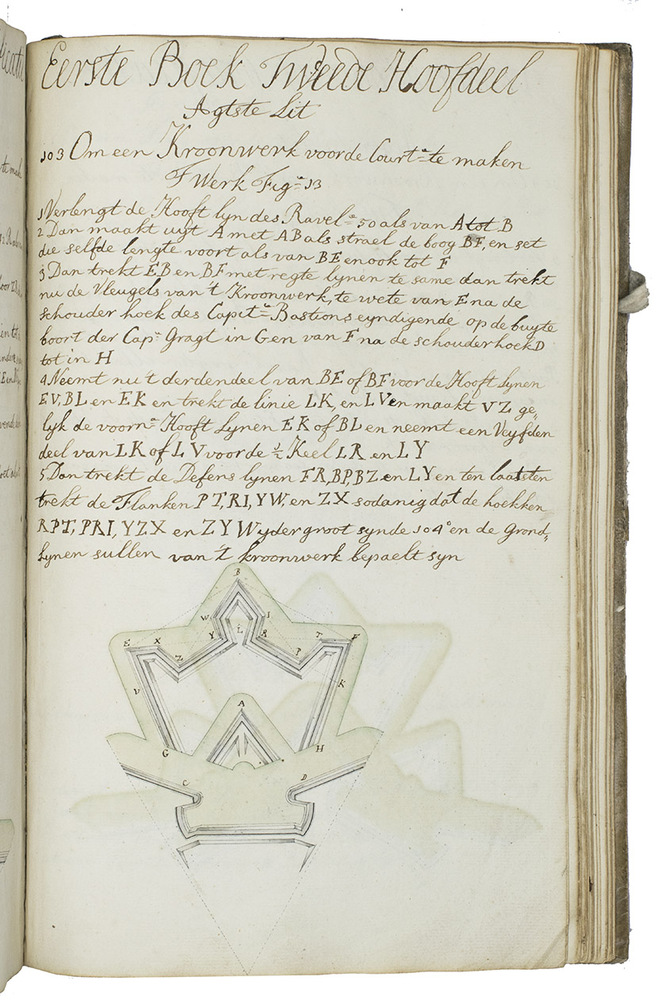 Eerste Boek Tweede Hoofdeel
Agtste Lit
103 Om een Kroonwerk voor de Court=ᵉ te maken
T Werk Fig=ᵃ 13
1 Verlengt de Hooft lyn des Ravel=ⁿ 50 als van A tot B
2 Dan maakt uyt A met AB als strael de boog BF, en set
die selfde lengte voort als van BE en ook tot F
3 Dan trekt EB en BF met regte lynen te same dan trekt
nu de Vleugels van 't Kroonwerk, te wete van E na de
schouder hoek des Capit=ᵉ Bastions eyndigende op de buyte
boort der Cap=ⁿ Gragt in G en van F na de schouderhoek D
tot in H
4 Neemt nu 't derdendeel van BE of BF voor de Hooft lynen
EV, BL en EK en trekt de linie LK, en LV en maakt VZ ge,
lyk de voorn=ᵉ Hooft Lynen EK of BL en neemt een Veyfden
deel van LK of LV voor de ½ Keel LR en LY
5 Dan trekt de Defens lynen FR, BP, BZ en LY en ten laatsten
trekt de Flanken PT, RI, YW en ZX sodanig dat de hoekken
RPT, PRI, YZX en ZYW yder groot synde 104° en de Grond,
Lynen sullen van 't kroonwerk bepaelt syn
B
W I
E X Y L R T F
Z P
V K
A
G H
C D